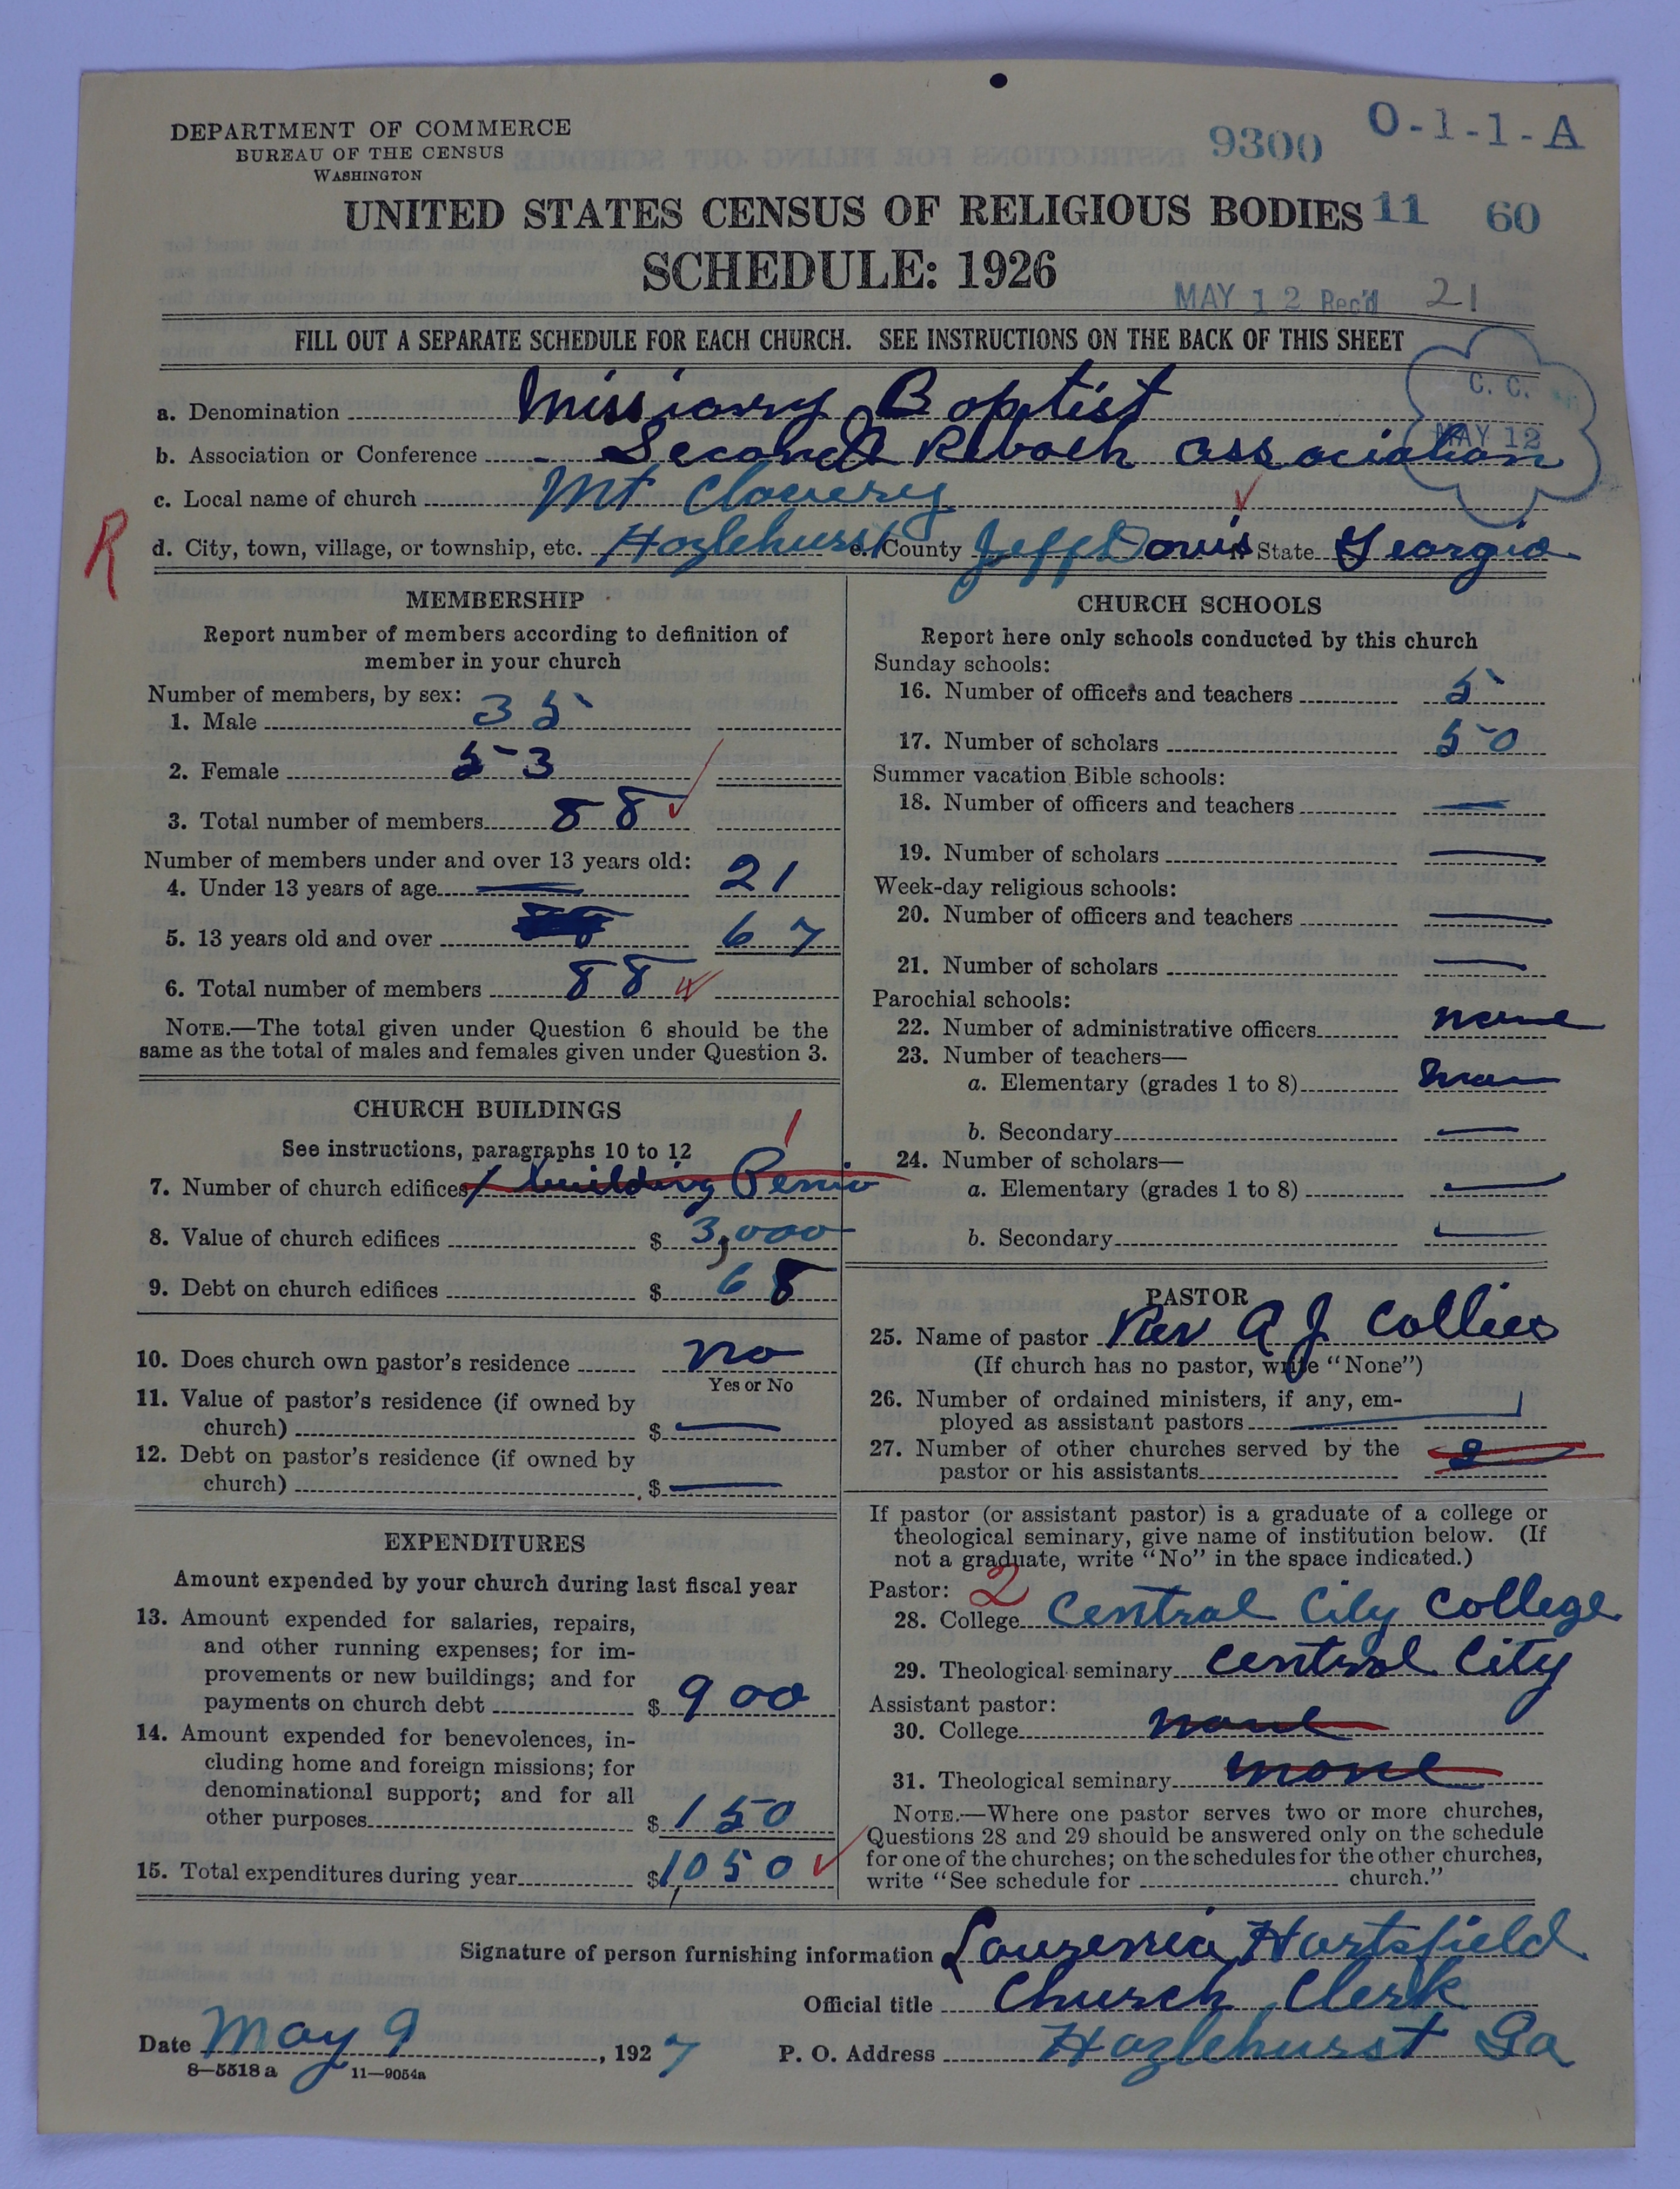 DEPARTMENT OF COMMERCE
BUREAU OF THE CENSUS
WASHINGTON
9300
O-1-1-A
UNITED STATES CENSUS OF RELIGIOUS BODIES
11 60
SCHEDULE: 1926
MAY 12 Rec'd 21
FILL OUT A SEPARATE SCHEDULE FOR EACH CHURCH. SEE INSTRUCTIONS ON THE BACK OF THIS SHEET
C. C.
MAY 12
a. Denomination Missionary Baptist
b. Association or Conference Second association
c. Local name of church Mt
R
d. City, town, village, or township, etc. Hazlehurst e. County Jeff Davis State Georgia
MEMBERSHIP
Report number of members according to definition of
member in your church
Number of members, by sex:
1. Male 35
2. Female 53
3. Total number of members 88
Number of members under and over 13 years old:
4. Under 13 years of age 21
5. 13 years old and over 67
6. Total number of members 88
NOTE.—The total given under Question 6 should be the
same as the total of males and females given under Question 3.
CHURCH BUILDINGS
See instructions, paragraphs 10 to 12
1
7. Number of church edifices 1 building
8. Value of church edifices $ 3,000
9. Debt on church edifices $ 68
10. Does church own pastor's residence no
Yes or No
11. Value of pastor's residence (if owned by
church) $ —
12. Debt on pastor's residence (if owned by
church) $ —
EXPENDITURES
Amount expended by your church during last fiscal year
13. Amount expended for salaries, repairs,
and other running expenses; for im-
provements or new buildings; and for
payments on church debt $ 900
14. Amount expended for benevolences, in-
cluding home and foreign missions; for
denominational support; and for all
other purposes $ 150
15. Total expenditures during year $ 1,050
CHURCH SCHOOLS
Report here only schools conducted by this church
Sunday schools:
16. Number of officers and teachers 5
17. Number of scholars 50
Summer vacation Bible schools:
18. Number of officers and teachers —
19. Number of scholars —
Week-day religious schools:
20. Number of officers and teachers —
21. Number of scholars —
Parochial schools:
22. Number of administrative officers none
23. Number of teachers—
a. Elementary (grades 1 to 8) none
b. Secondary —
24. Number of scholars—
a. Elementary (grades 1 to 8) —
b. Secondary —
PASTOR
25. Name of pastor Rev A J Collins
(If church has no pastor, write "None")
26. Number of ordained ministers, if any, em-
ployed as assistant pastors
27. Number of other churches served by the
pastor or his assistants 2
If pastor (or assistant pastor) is a graduate of a college or
theological seminary, give name of institution below. (If
not a graduate, write "No" in the space indicated.)
Pastor: 2
28. College Central City College
29. Theological seminary Central City
Assistant pastor:
30. College none
31. Theological seminary none
NOTE.—Where one pastor serves two or more churches,
Questions 28 and 29 should be answered only on the schedule
for one of the churches; on the schedules for the other churches,
write "See schedule for church."
Signature of person furnishing information Hartsfield
Official title Church Clerk
Date May 9, 1927 P. O. Address Hazlehurst Ga
8—5518 a 11—9054a